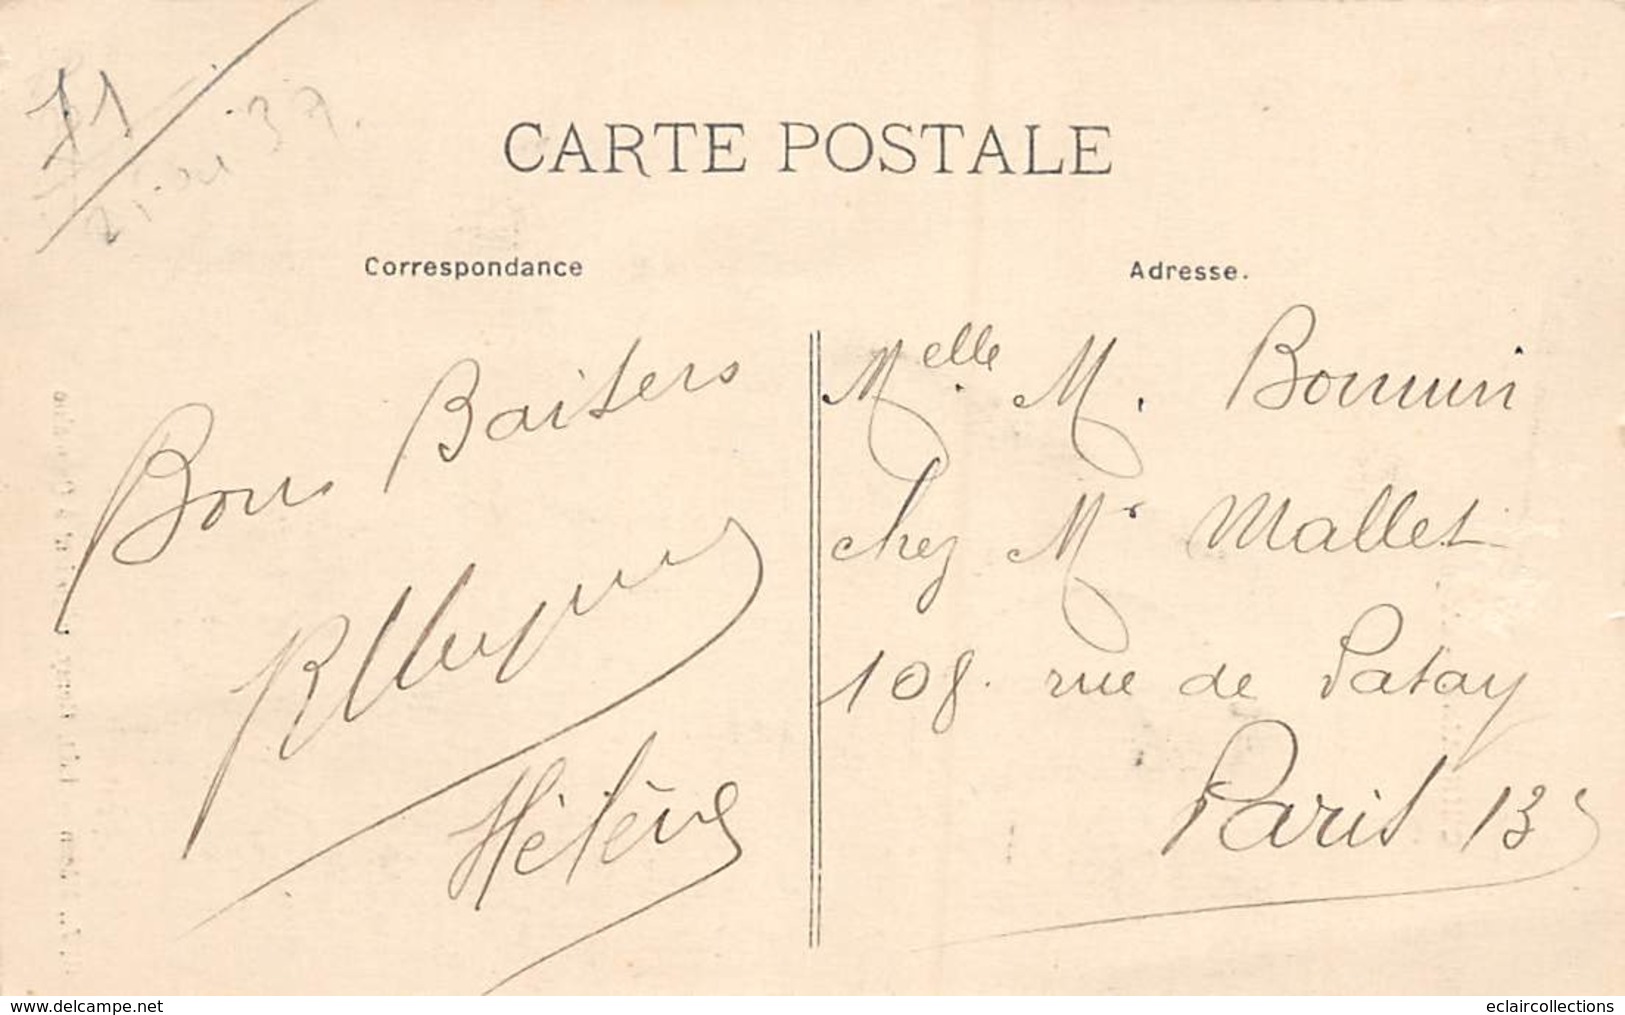 71
CARTE POSTALE
Correspondance
Adresse.
Bons Baisers
Hélène
Melle M.
chez Mr Mallet
108. rue de Patay
Paris 13e
www.delcampe.net
eclaircollections